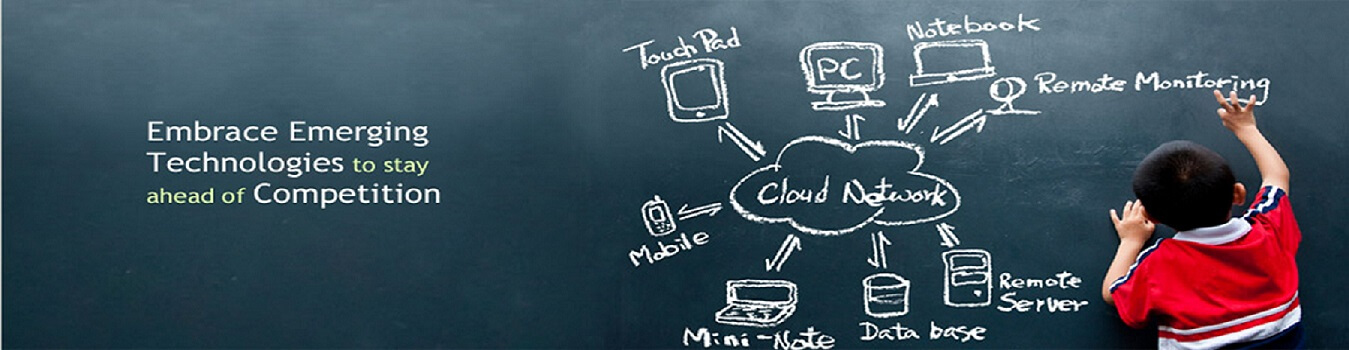 Embrace Emerging
Technologies to stay
ahead of Competition
Touch Pad
PC
Notebook
Remote Monitoring
Cloud Network
Mobile
Mini-Note
Data base
Remote
Server